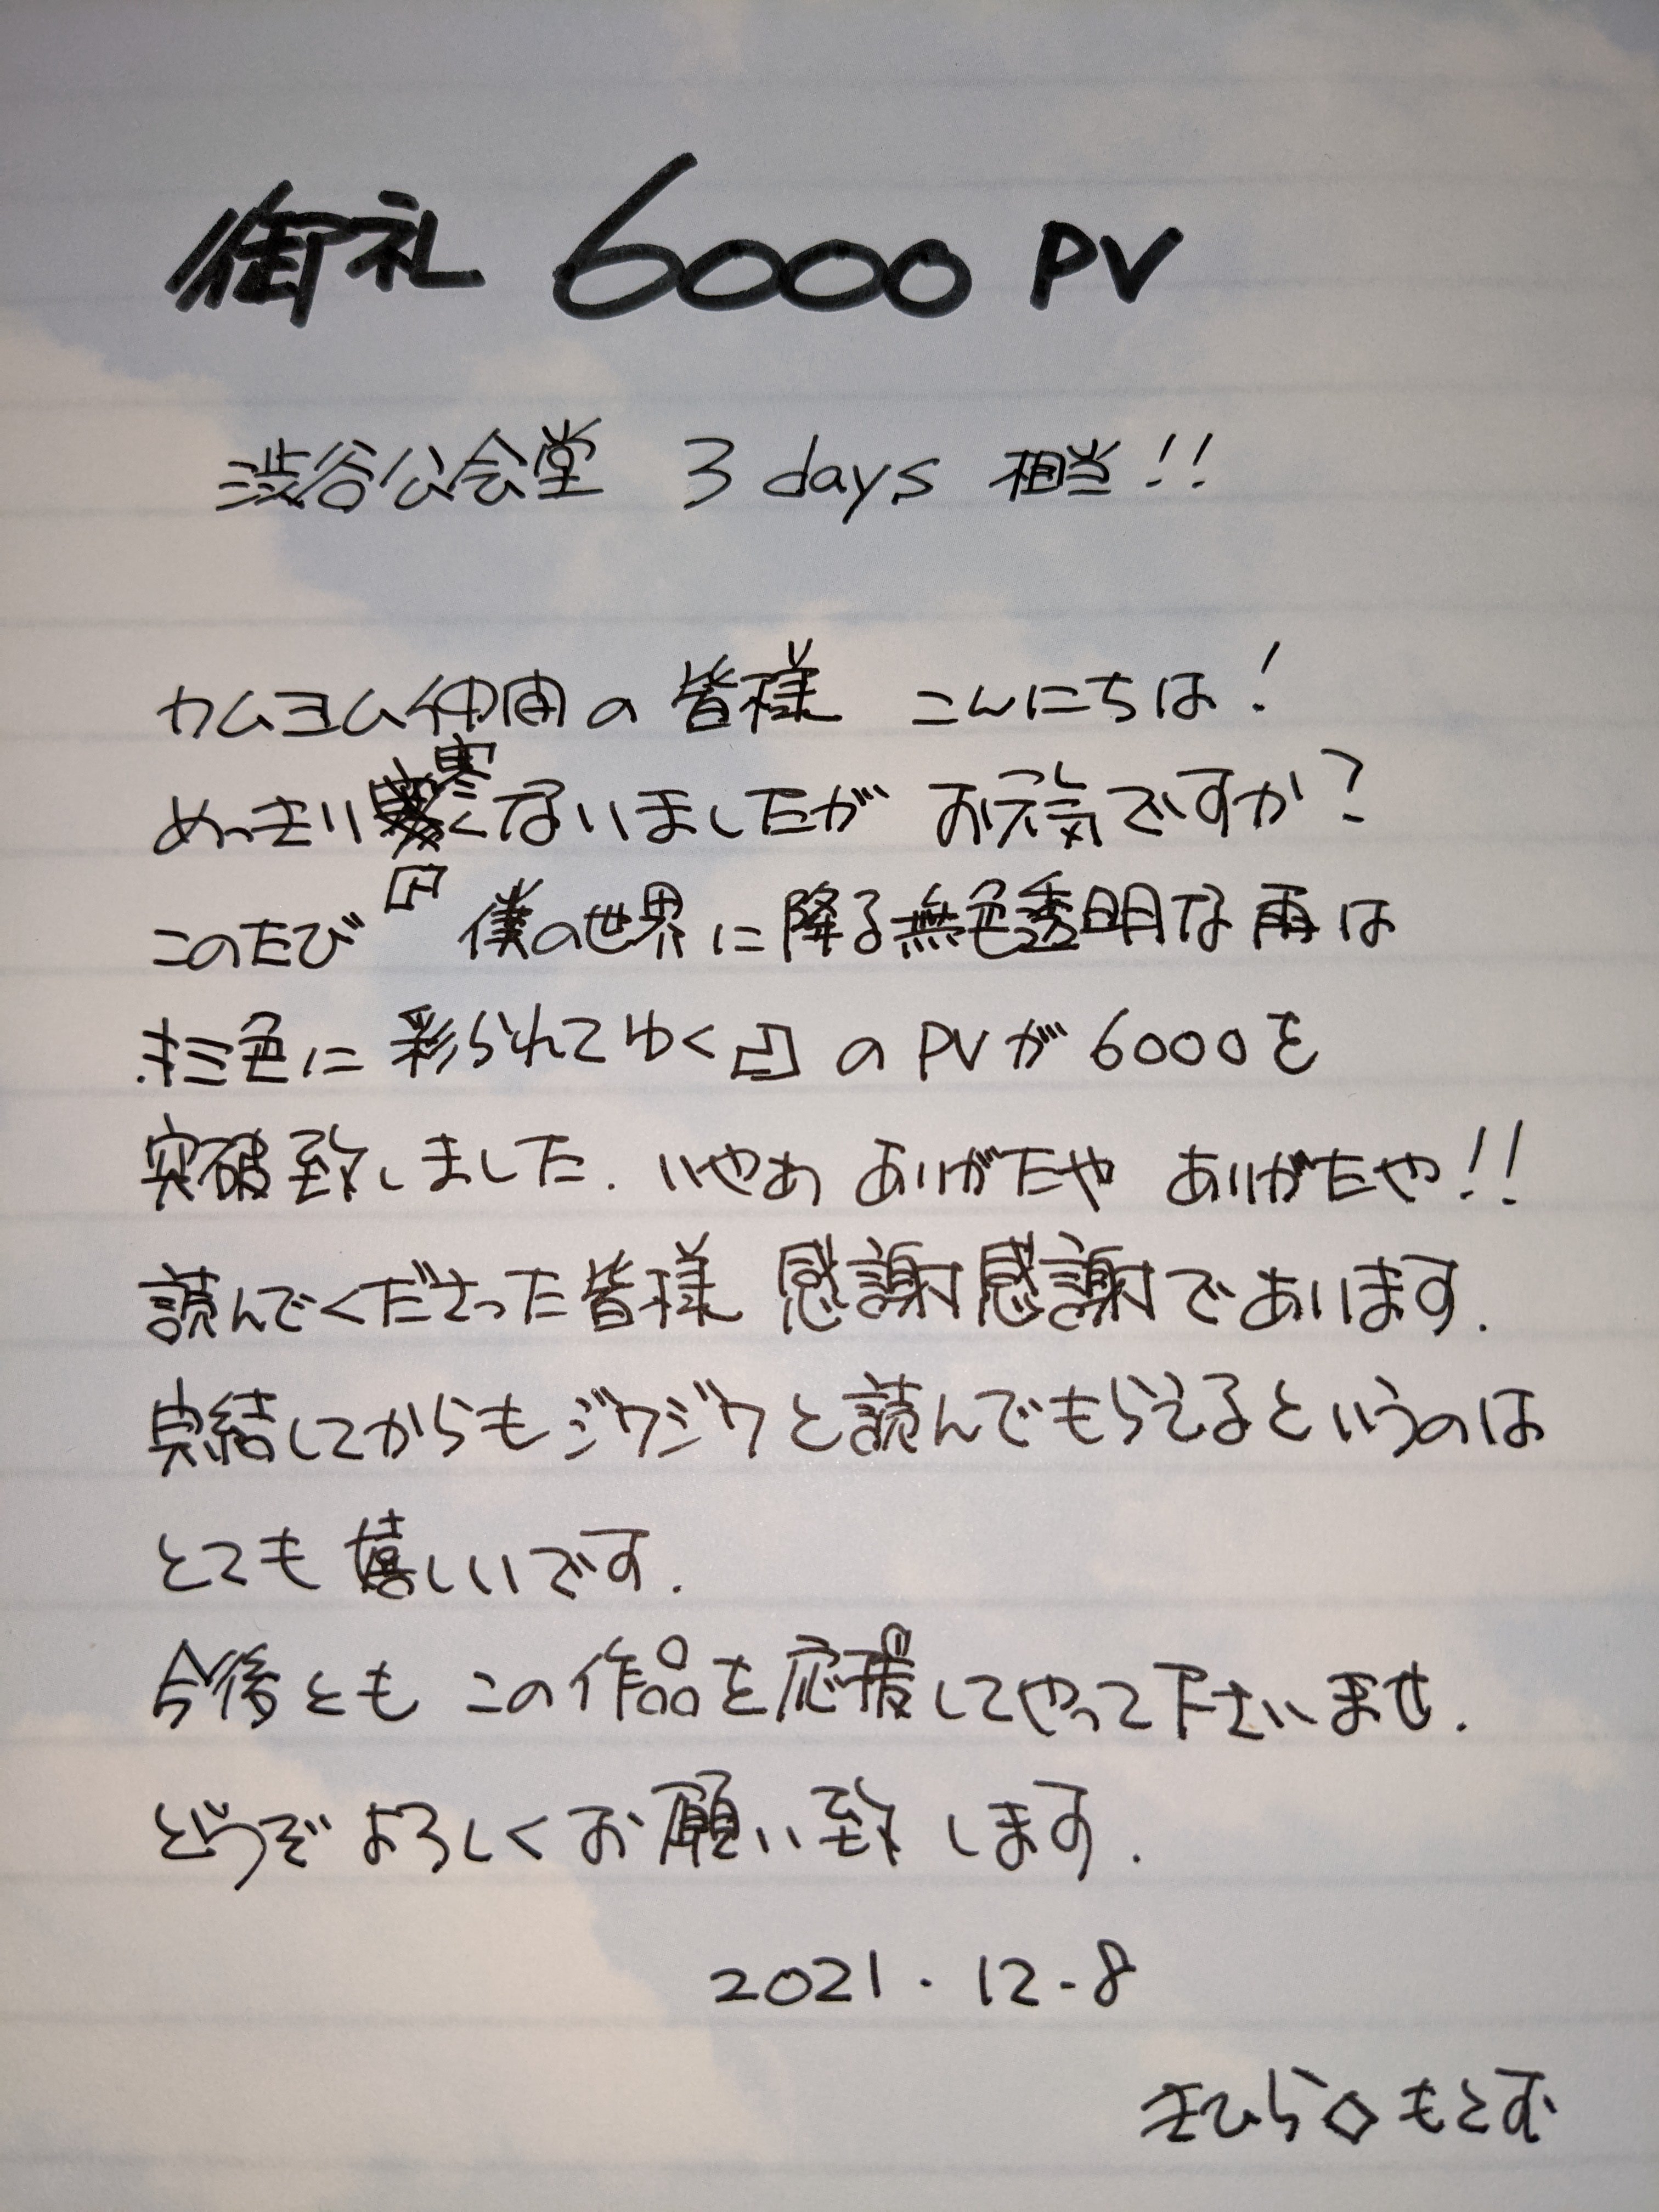 御礼 6000 PV
渋谷公会堂 3 days 相当!!
カムヨム仲間の皆様 こんにちは!
めっきり寒くなりましたが お元気ですか?
このたび『僕の世界に降る無色透明な雨は
キミ色に彩られてゆく』のPVが6000を
突破致しました. いやぁ ありがたや ありがたや!!
読んでくださった皆様 感謝感謝であります.
完結してからもジワジワと読んでもらえるというのは
とても嬉しいです.
今後とも この作品を応援してやって下さいませ.
どうぞよろしくお願い致します.
2021.12.8
きひら◇もとお